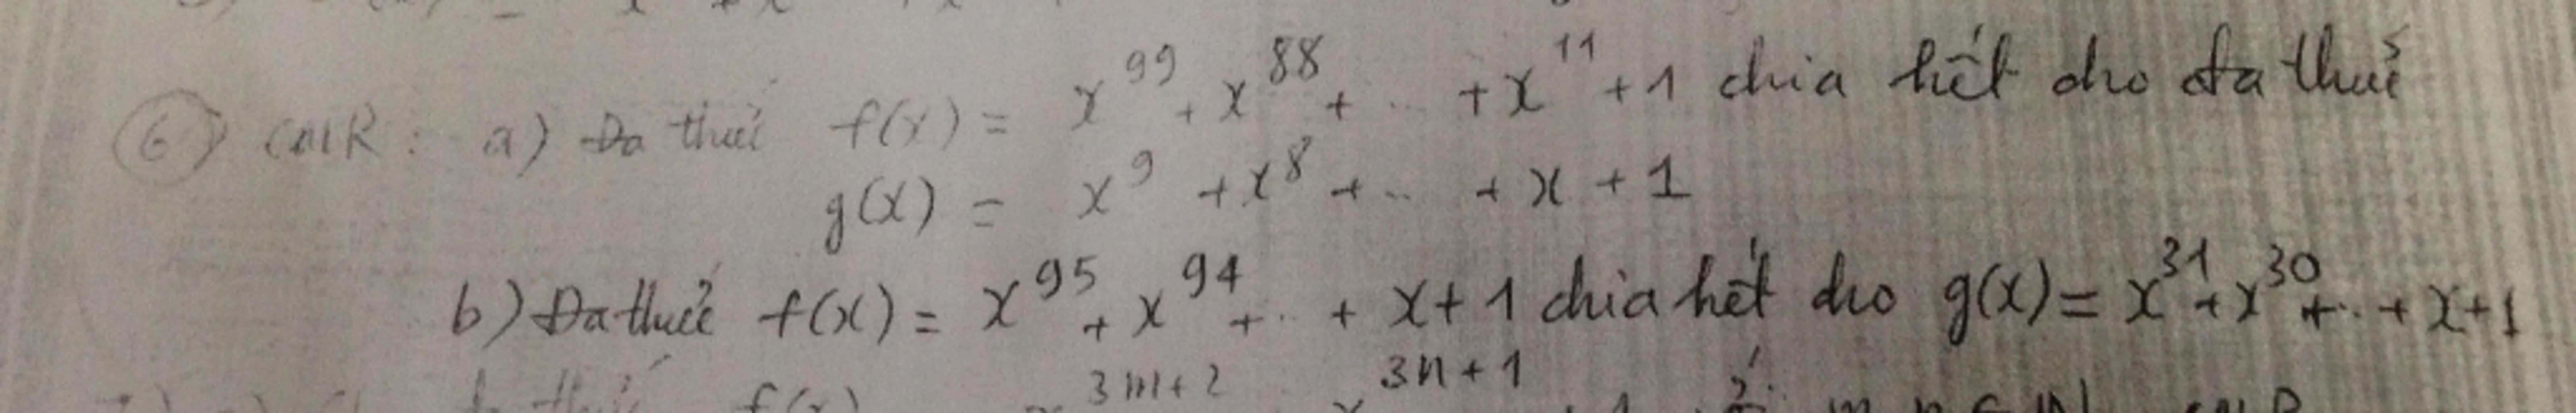 6) CMR: a) Đa thức f(x) = x^99 + x^88 + .. + x^11 + 1 chia hết cho đa thức
g(x) = x^9 + x^8 + .. + x + 1
b) Đa thức f(x) = x^95 + x^94 + .. + x + 1 chia hết cho g(x) = x^31 + x^30 + .. + x + 1
f(x) 3m+2 3n+1